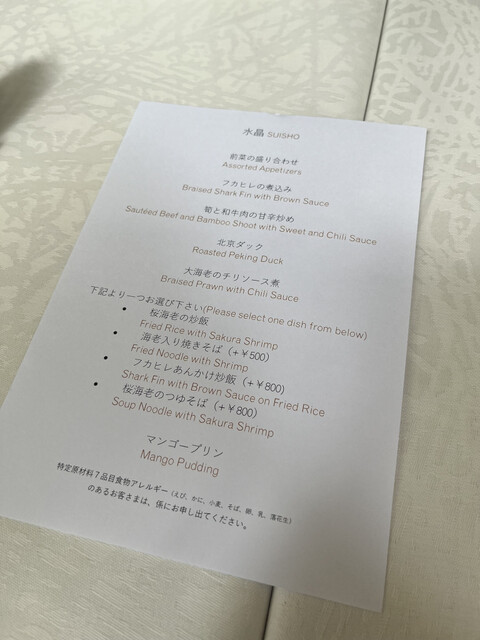 水晶 SUISHO
前菜の盛り合わせ
Assorted Appetizers
フカヒレの煮込み
Braised Shark Fin with Brown Sauce
筍と和牛肉の甘辛炒め
Sautéed Beef and Bamboo Shoot with Sweet and Chili Sauce
北京ダック
Roasted Peking Duck
大海老のチリソース煮
Braised Prawn with Chili Sauce
下記より一つお選び下さい(Please select one dish from below)
• 桜海老の炒飯
Fried Rice with Sakura Shrimp
• 海老入り焼きそば（+￥500）
Fried Noodle with Shrimp
• フカヒレあんかけ炒飯（+￥800）
Shark Fin with Brown Sauce on Fried Rice
• 桜海老のつゆそば（+￥800）
Soup Noodle with Sakura Shrimp
マンゴープリン
Mango Pudding
特定原材料７品目食物アレルギー（えび、かに、小麦、そば、卵、乳、落花生）
のあるお客さまは、係にお申し出てください。